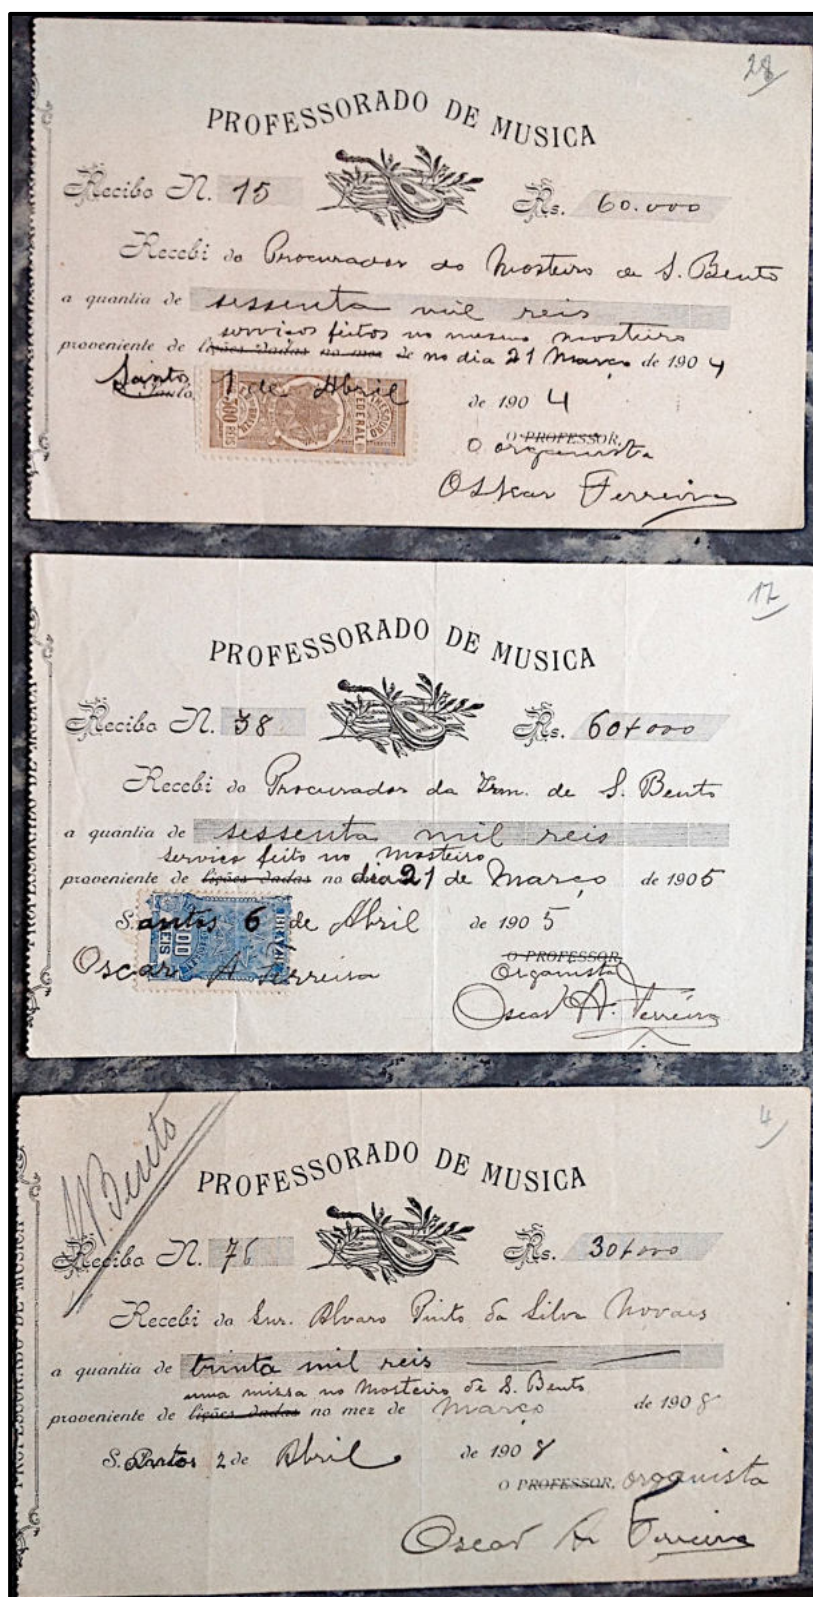 28
PROFESSORADO DE MUSICA
Recibo N. 15 Rs. 60.000
Recebi do Procurador do Mosteiro de S. Bento
a quantia de sessenta mil reis
serviços feitos no mesmo mosteiro
proveniente de lições dadas no mez de no dia 21 Março de 1904
Santos 1 de Abril de 1904
THESOURO FEDERAL
300 RÉIS
O PROFESSOR,
O organista
Oskar Ferreira
17
PROFESSORADO DE MUSICA
Recibo N. 38 Rs. 60$000
Recebi do Procurador da Irm. de S. Bento
a quantia de sessenta mil reis
serviço feito no Mosteiro
proveniente de lições dadas no dia 21 de Março de 1905
Santos 6 de Abril de 1905
REIS
O PROFESSOR,
Organista
Oscar A Ferreira
Oscar A. Ferreira
4
S. Bento
PROFESSORADO DE MUSICA
Recibo N. 76 Rs. 30$000
Recebi do Snr. Alvaro Pinto da Silva Novaes
a quantia de trinta mil reis
uma missa no Mosteiro de S. Bento
proveniente de lições dadas no mez de Março de 1908
S. Santos 2 de Abril de 1908
O PROFESSOR, organista
Oscar A Ferreira
PROFESSORADO DE MUSICA